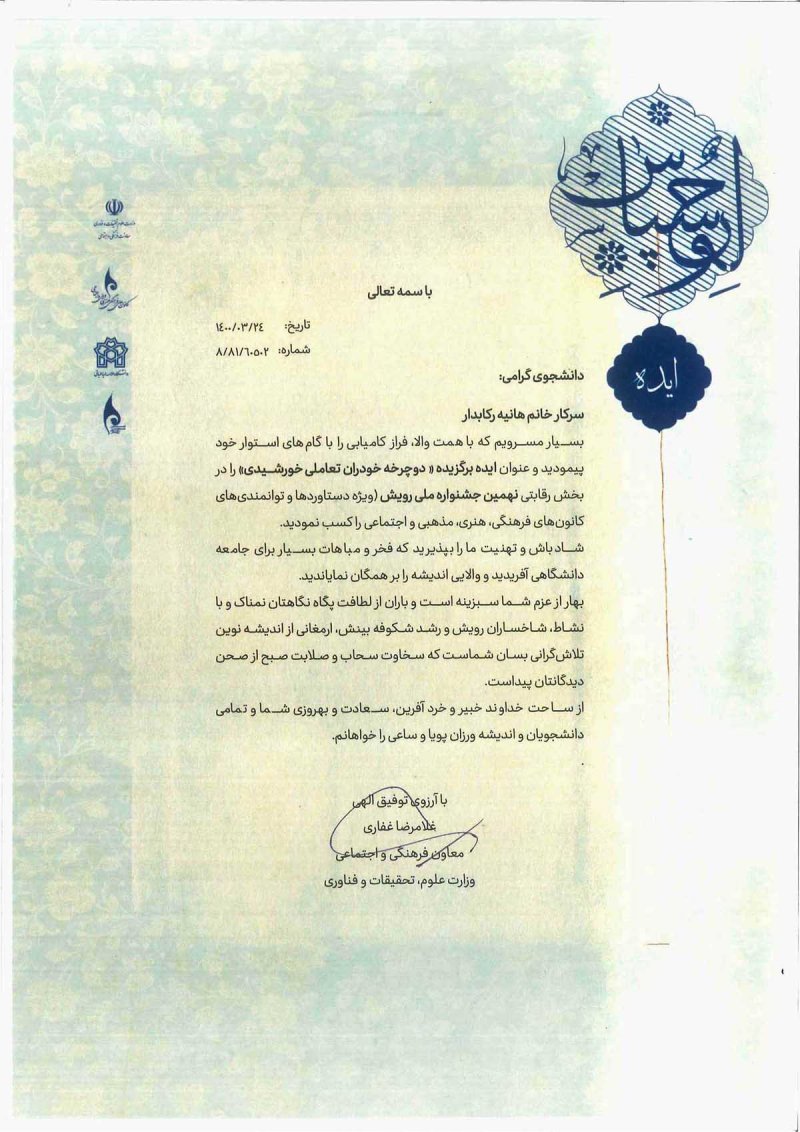 لوح سپاس
ایده
با سمه تعالی
تاریخ: ۱٤۰۰/۰۳/۲٤
شماره: ۸/۸۱/٦۰۵۰۲
دانشجوی گرامی:
سرکار خانم هانیه رکابدار
بسیار مسرویم که با همت والا، فراز کامیابی را با گام های استوار خود
پیمودید و عنوان ایده برگزیده « دوچرخه خودران تعاملی خورشیدی» را در
بخش رقابتی نهمین جشنواره ملی رویش (ویژه دستاوردها و توانمندی‌های
کانون‌های فرهنگی، هنری، مذهبی و اجتماعی را کسب نمودید.
شادباش و تهنیت ما را بپذیرید که فخر و مباهات بسیار برای جامعه
دانشگاهی آفریدید و والایی اندیشه را بر همگان نمایاندید.
بهار از عزم شما سبزینه است و باران از لطافت پگاه نگاهتان نمناک و با
نشاط، شاخساران رویش و رشد شکوفه بینش، ارمغانی از اندیشه نوین
تلاش‌گرانی بسان شماست که سخاوت سحاب و صلابت صبح از صحن
دیدگانتان پیداست.
از ساحت خداوند خبیر و خرد آفرین، سعادت و بهروزی شما و تمامی
دانشجویان و اندیشه ورزان پویا و ساعی را خواهانم.
با آرزوی توفیق الهی
غلامرضا غفاری
معاون فرهنگی و اجتماعی
وزارت علوم، تحقیقات و فناوری